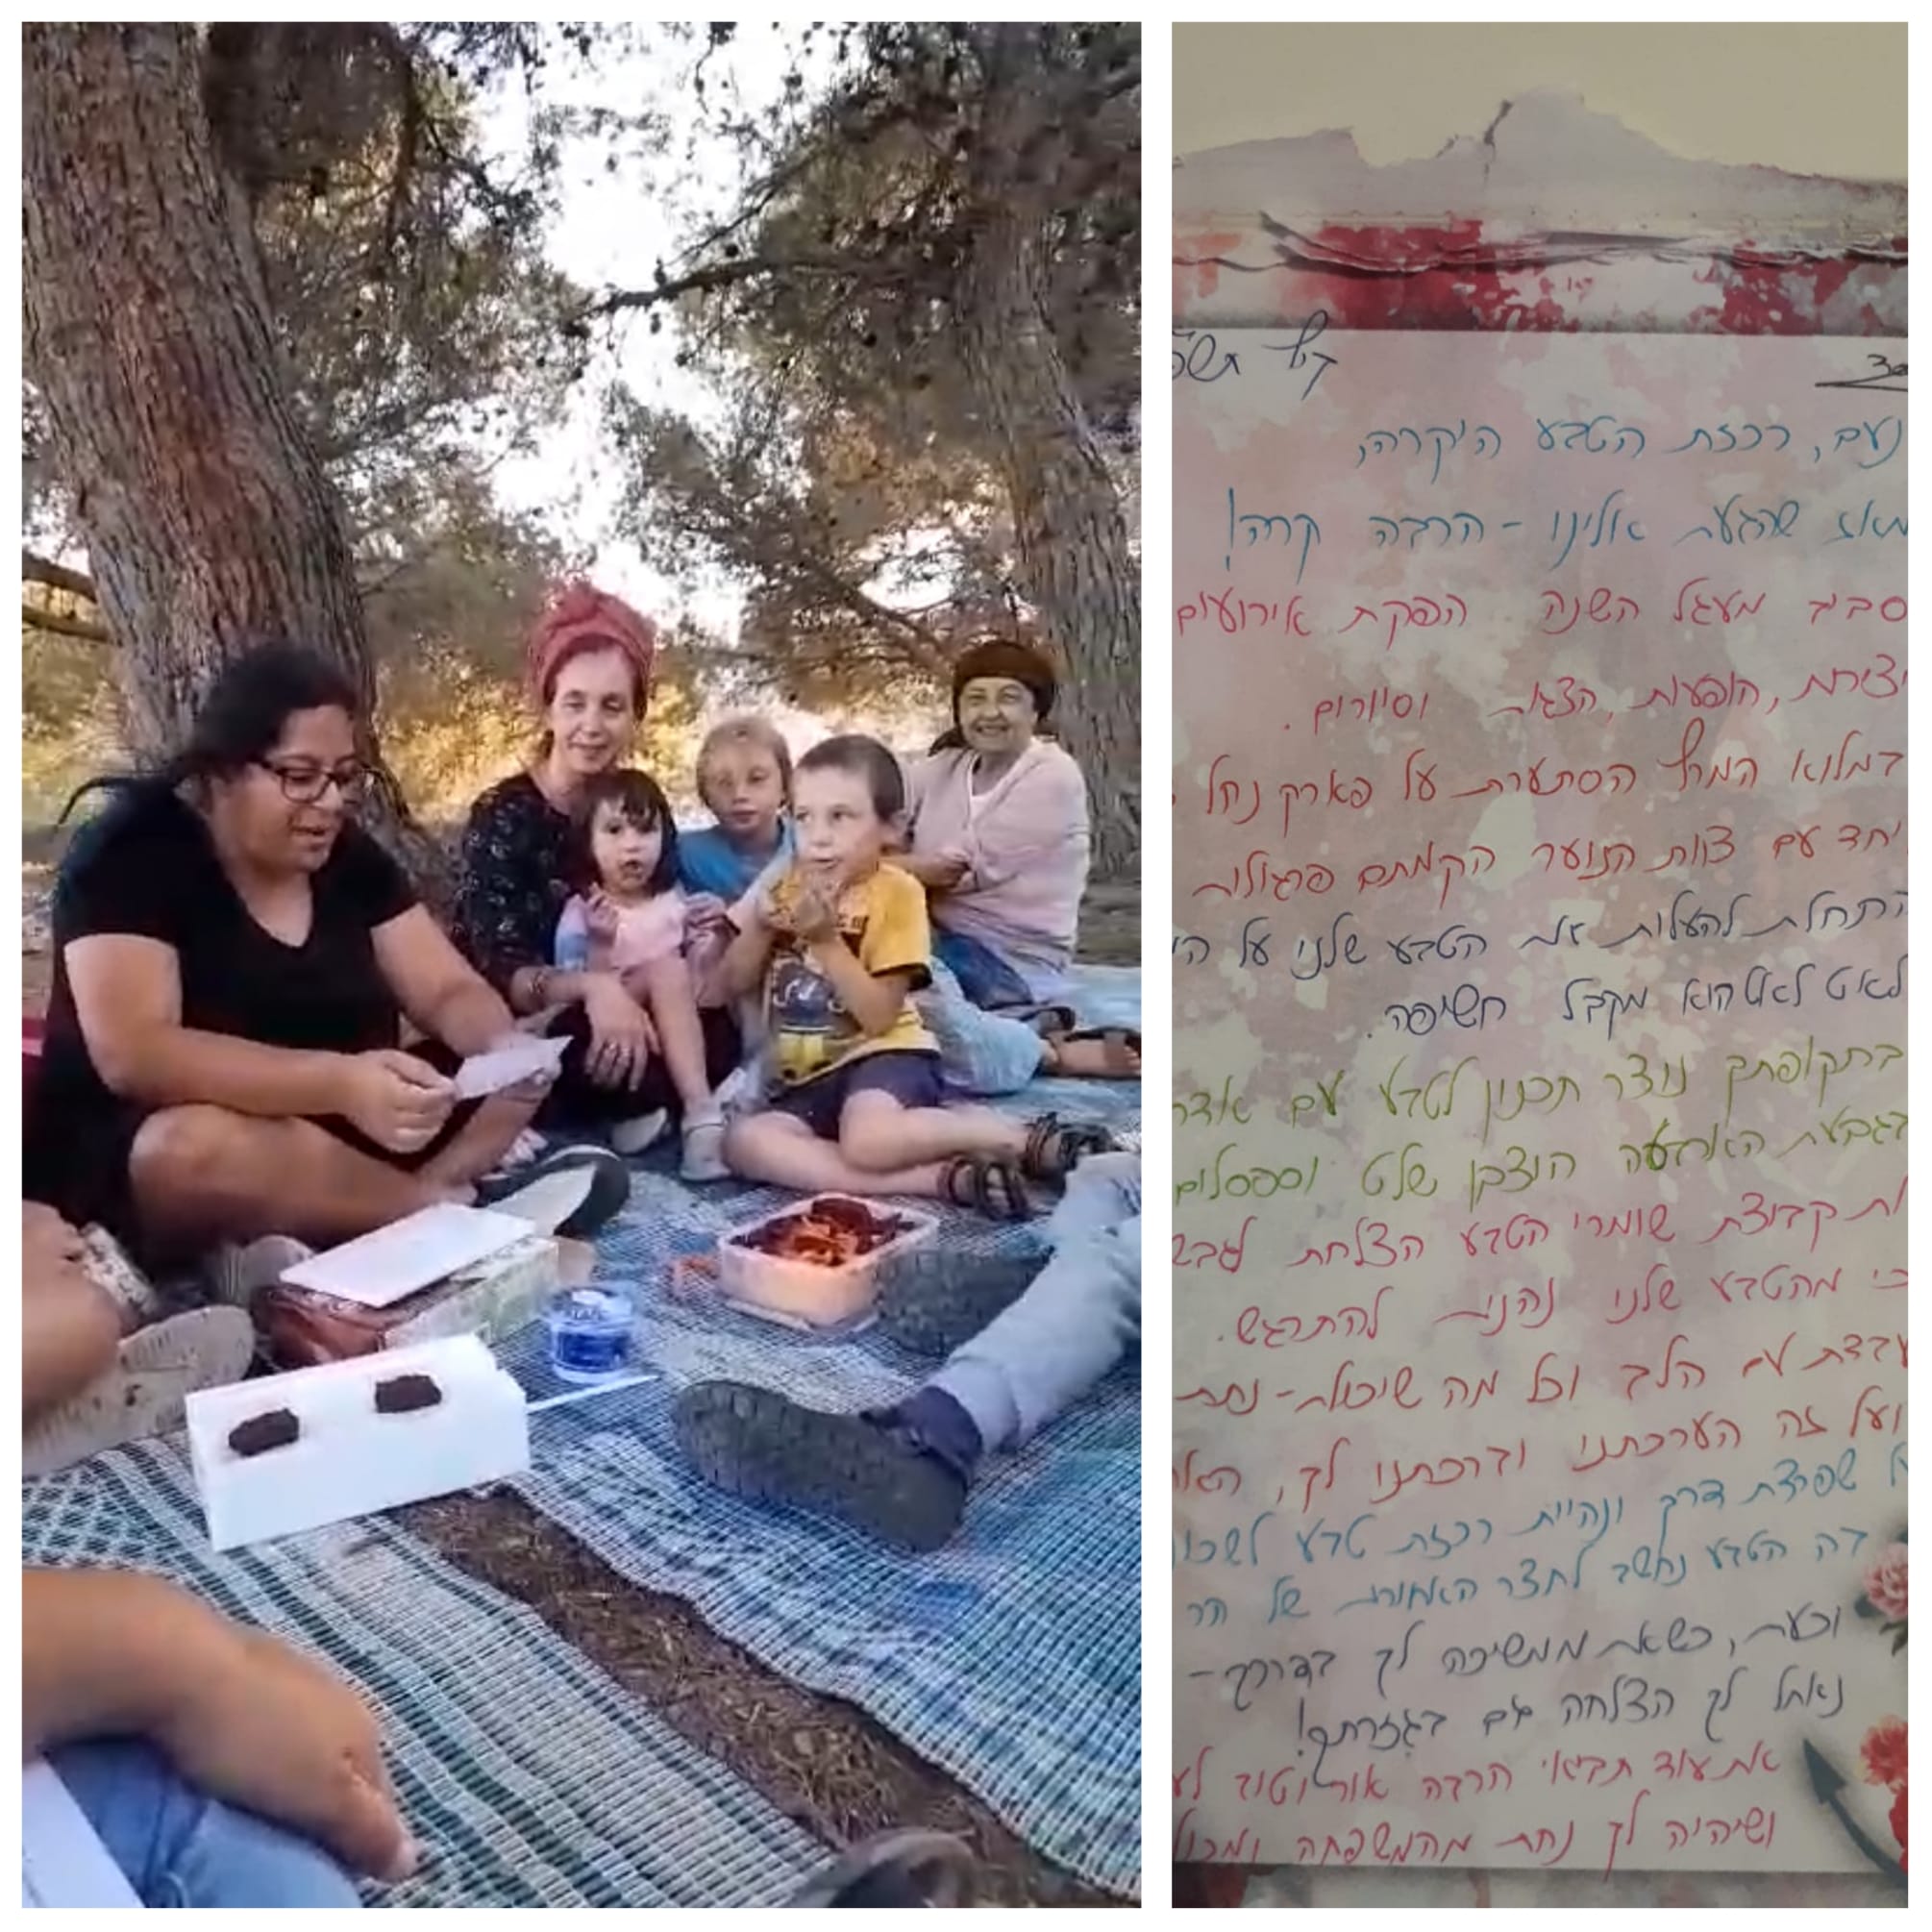 קיץ תשפ
נעם, רכזת הטבע היקרה,
מאז שהגעת אלינו - הרבה קרה!
סביב מעגל השנה הפקת אירועים
יצירות, הופעות, הצגות וסיורים.
במלוא המרץ הסתערת על פארק נחל
יחד עם צוות הנוער הקמתם פרגולות
התחלת להעלות את הטבע שלנו על
לאט לאט הוא מקבל חשיפה.
בתקופתך נוצר תכנון לטבע עם
בגבעת הארבעה הוצבו שלט וספסלים
קבוצת שומרי הטבע הצלחת
כי מהטבע שלנו נהנית להתרגש.
עבדת עם הלב וכל מה שיכולת - נתת
ועל זה הערכתנו וברכתנו לך,
שפרצת דרך ונהיית רכזת טבע
בה הטבע נחשב לחצר האחורית של
וכעת, כשאת ממשיכה לך בדרכך -
נאחל לך הצלחה גם בגזרתך!
את עוד תביאי הרבה אור וטוב
ושיהיה לך נחת מהמשפחה